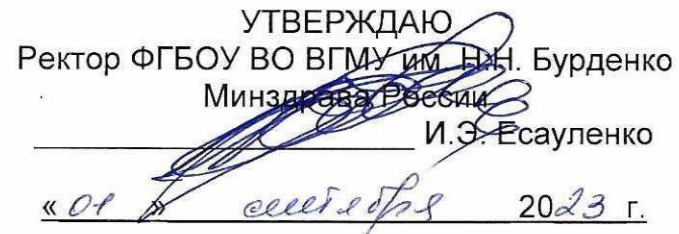 УТВЕРЖДАЮ
Ректор ФГБОУ ВО ВГМУ им. Н.Н. Бурденко
Минздрава России
И.Э. Есауленко
« 01 » сентября 2023 г.